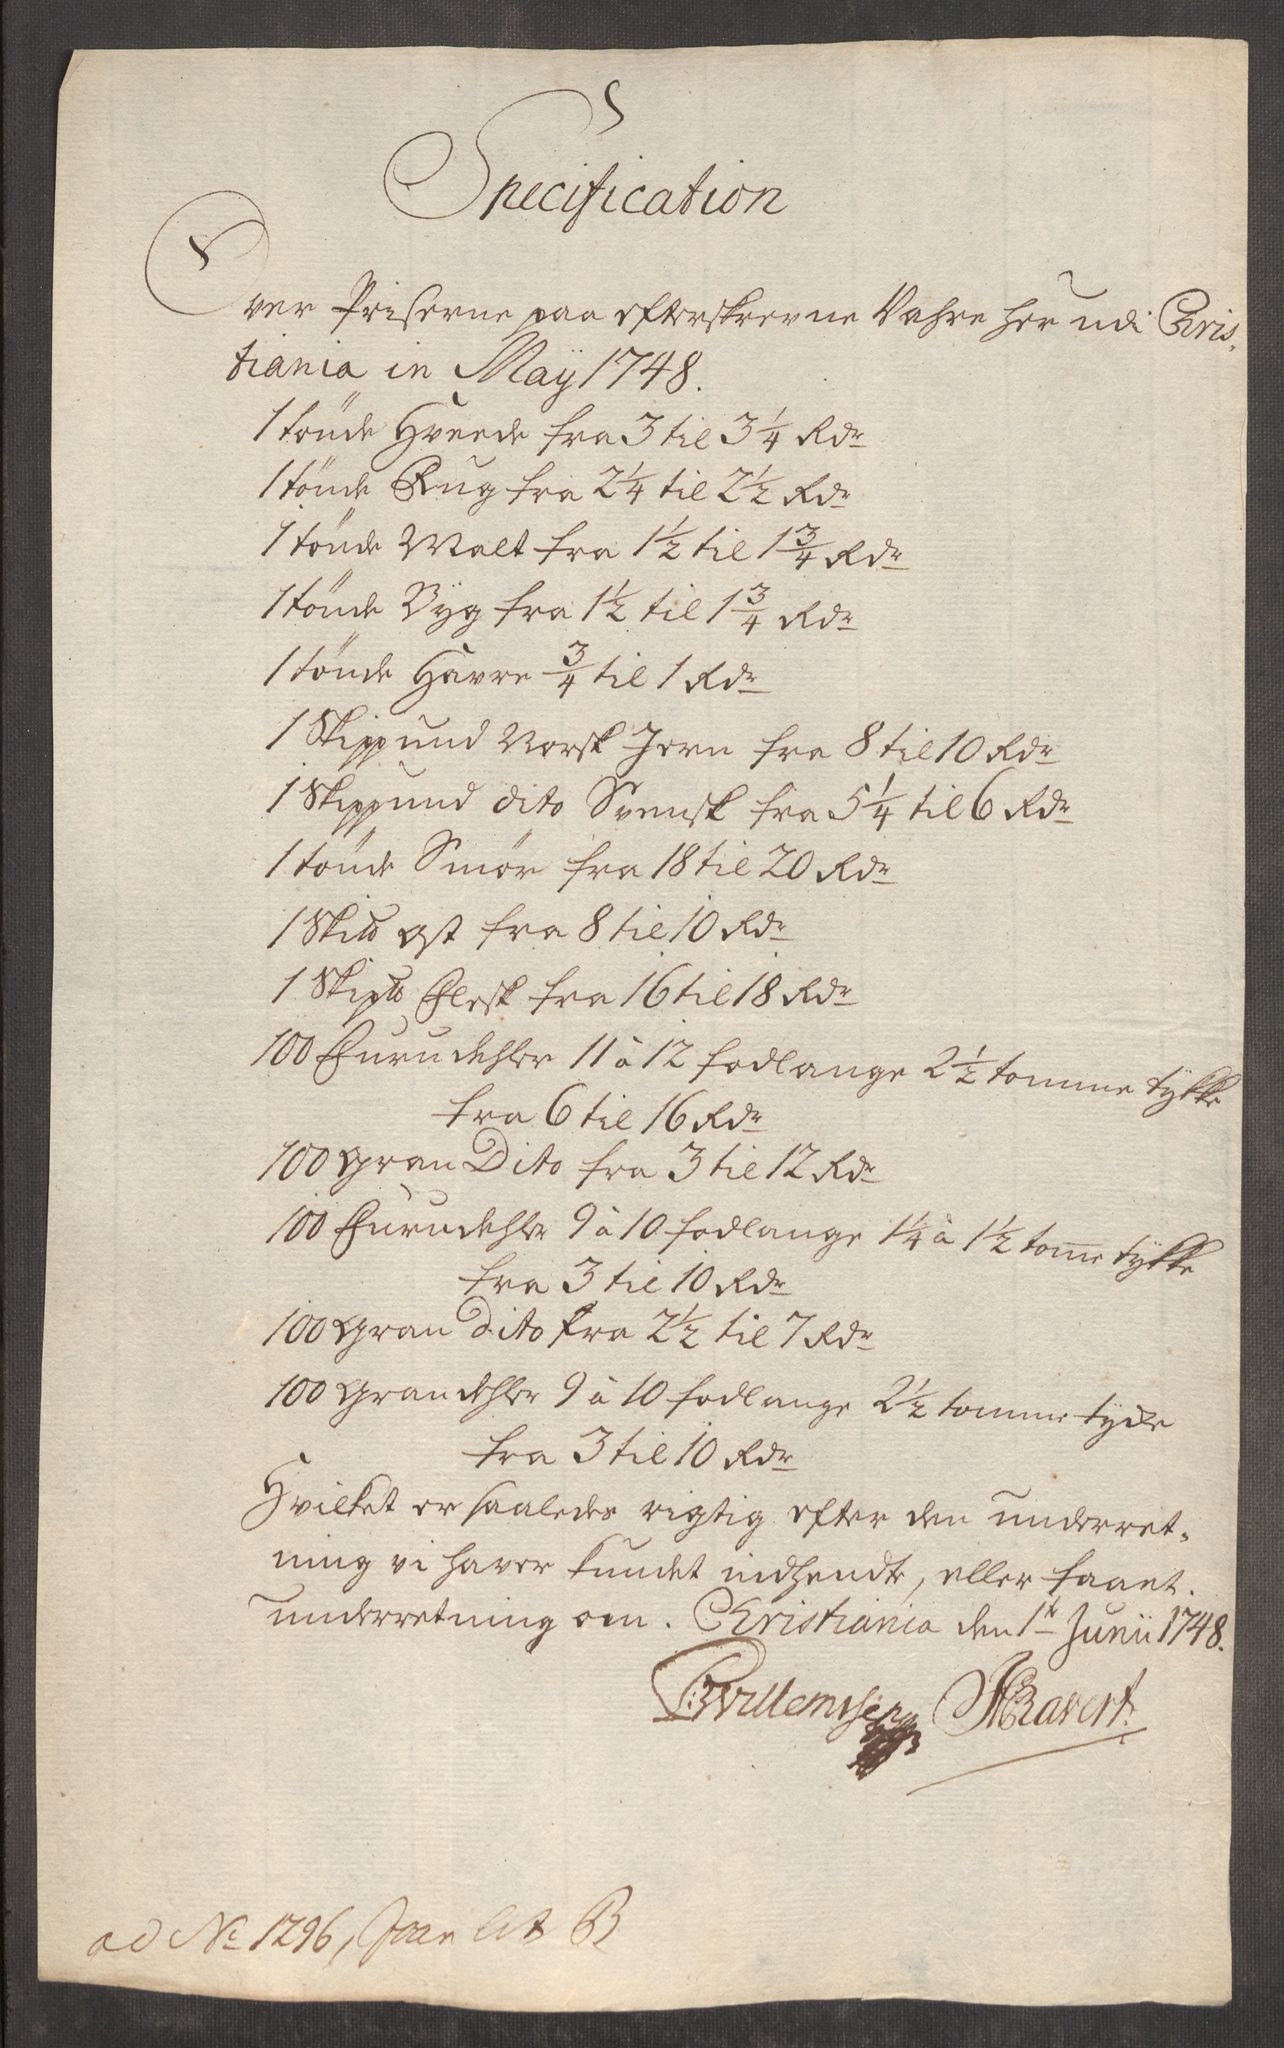 Specification
Over Priserne paa efterskrevne Vahre her udi Chris,
tiania in Maÿ 1748.
1 tönde Hveede fra 3 til 3 1/4 Rdr
1 tönde Rug fra 2 1/4 til 2 1/2 Rdr
1 tönde Malt fra 1 1/2 til 1 3/4 Rdr
1 tönde Bÿg fra 1 1/2 til 1 3/4 Rdr
1 tönde Havre 3/4 til 1 Rdr
1 Skippund Norsk Jern fra 8 til 10 Rdr
1 Skippund dito Svensk fra 5 1/4 til 6 Rdr
1 tönde Smør fra 18 til 20 Rdr
1 Ski℔ Ost fra 8 til 10 Rdr
1 Skip℔ Flesk fra 16 til 18 Rdr
100 Furu dehler 11 à 12 fodlange 2 1/2 tomme tÿkke
fra 6 til 16 Rdr
100 Gran Dito fra 3 til 12 Rdr
100 Furudehler 9 à 10 fodlange 1 1/4 à 1 1/2 tom̅e tÿkke
fra 3 til 10 Rdr
100 Gran dito fra 2 1/2 til 7 Rdr
100 Grandehler 9 à 10 fodlange 2 1/2 tomme tycke
fra 3 til 10 Rdr
Hvilket er saaledes rigtig efter den underret,
ning vi haver kundet indhendte, eller faaet
underretning om. Christiania den 1te Junii 1748.
Willemsen Ravert
ad No 1296, Lit B